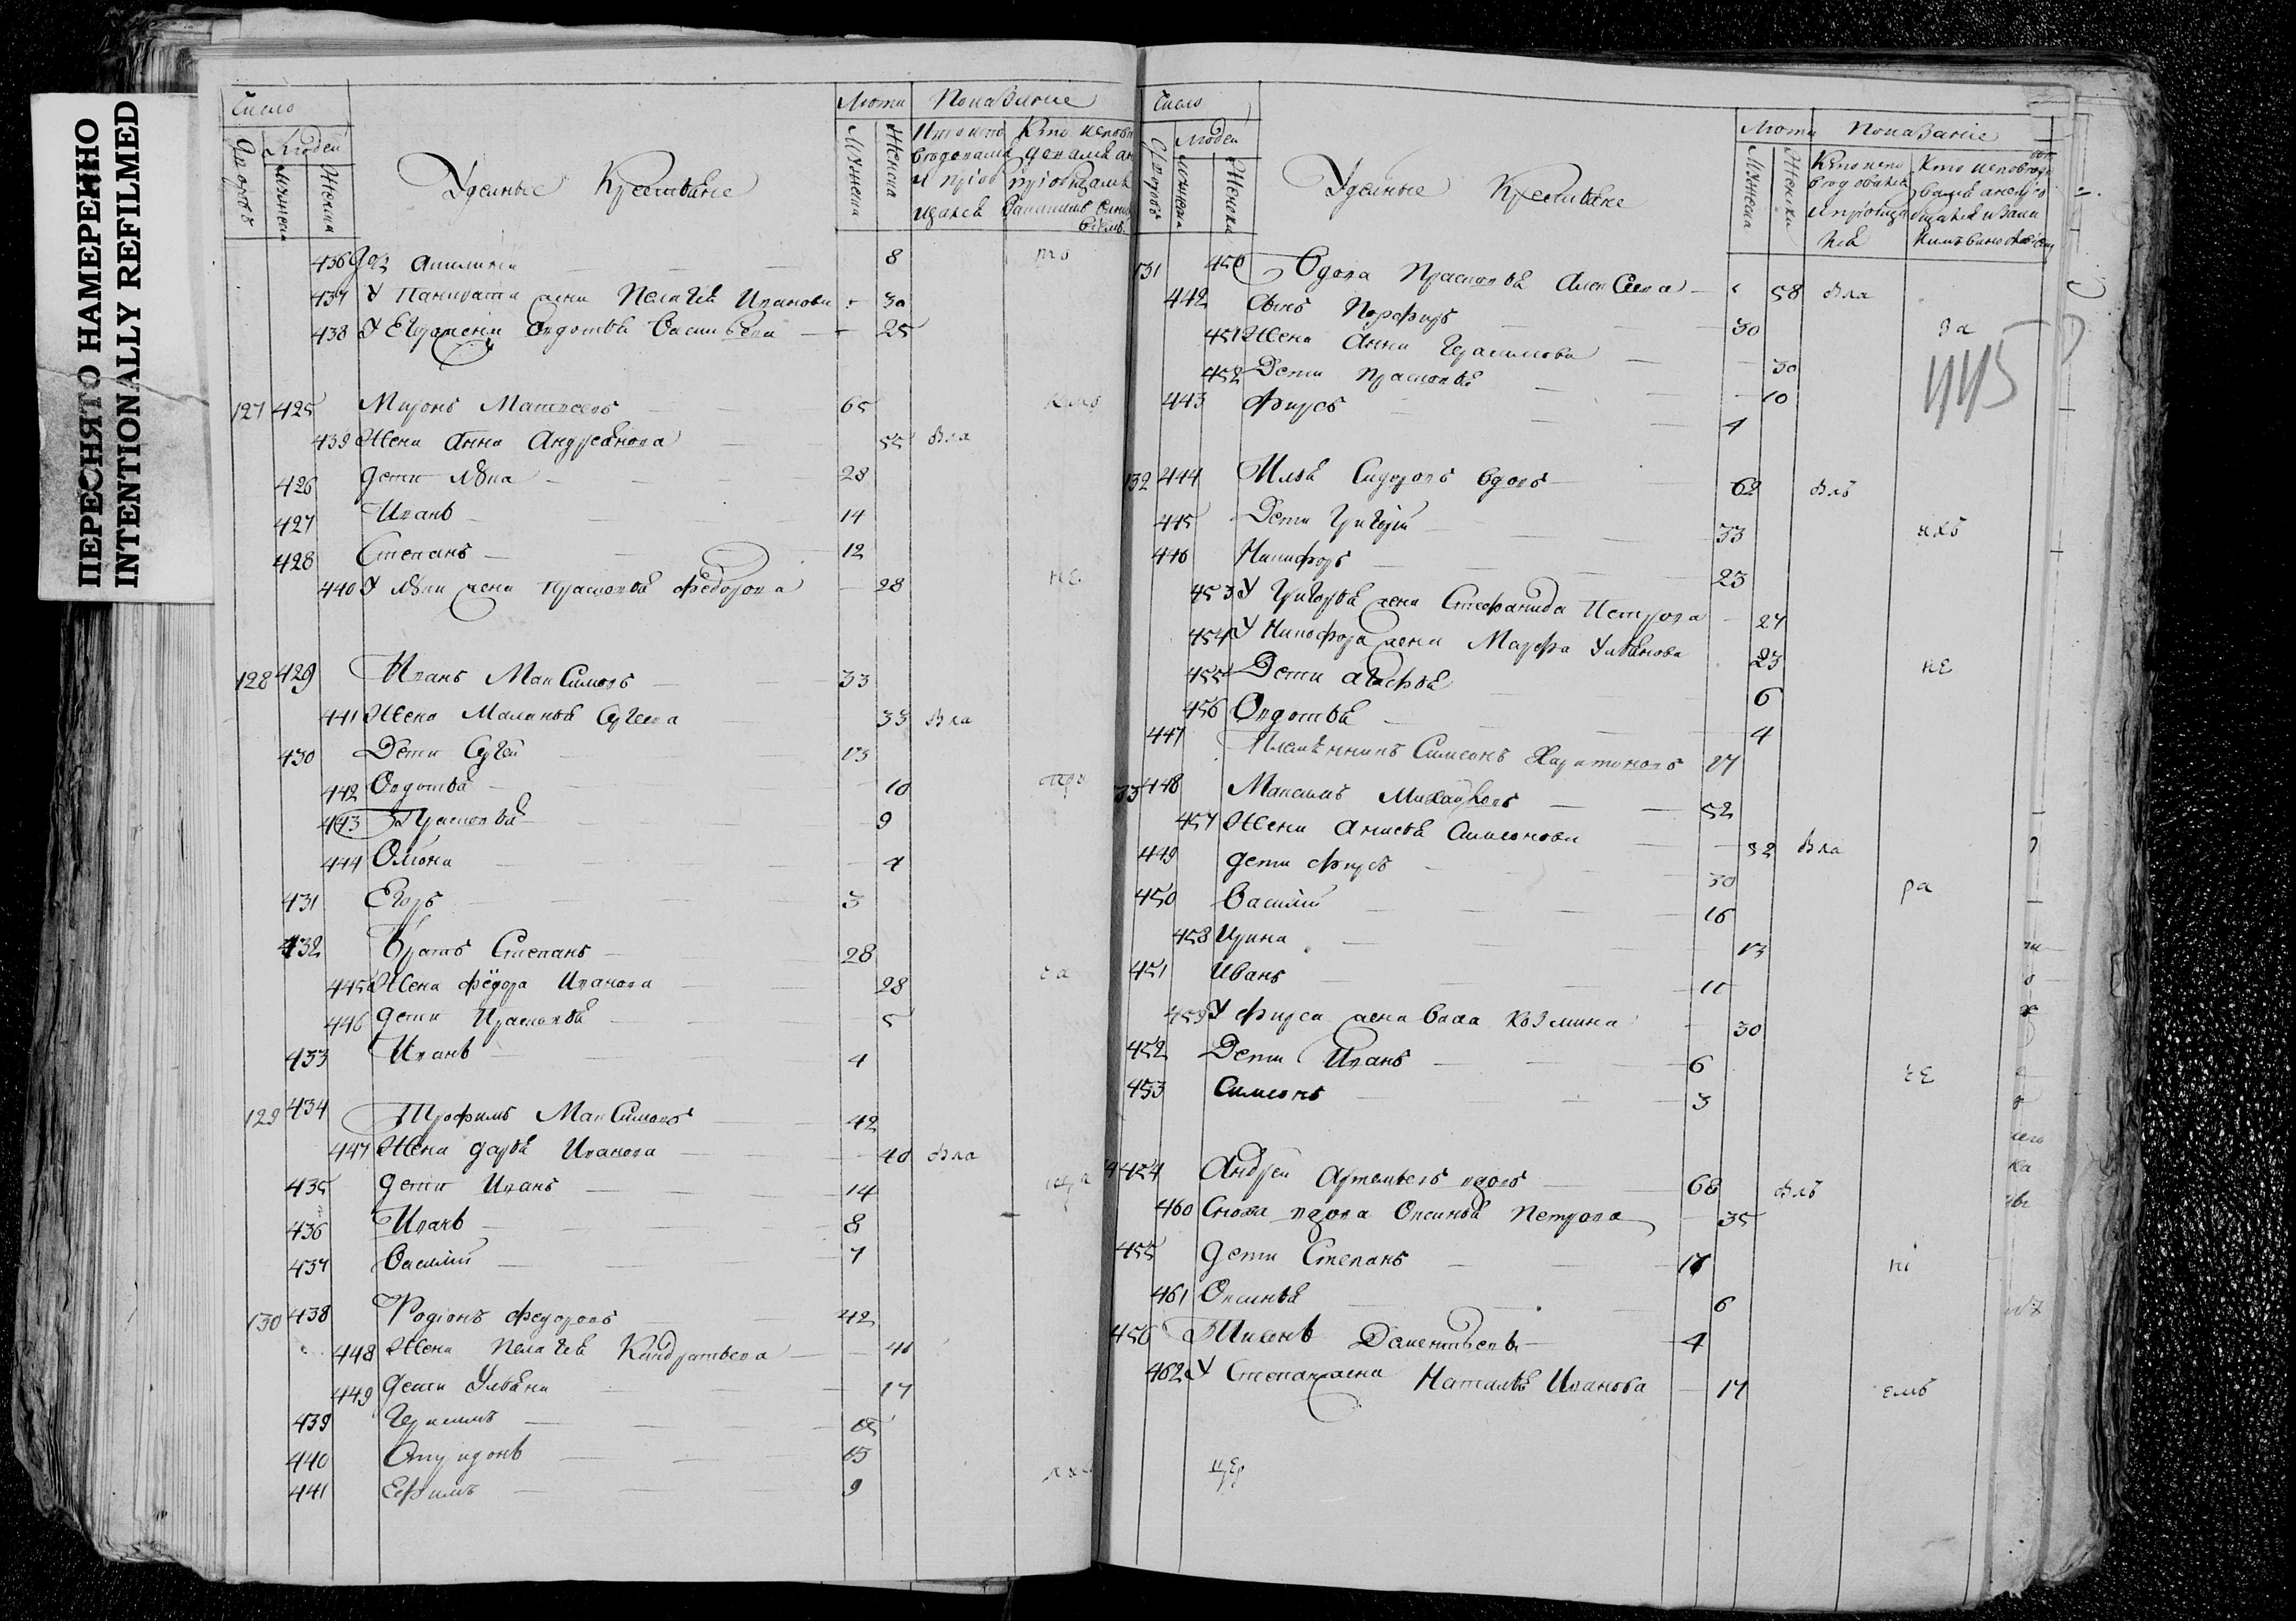 ПЕРЕСНЯТО НАМЕРЕННО
INTENTIONALLY REFILMED
Число
Дворовъ
Людей
Мужеска
Женска
Уделные Крестьяне
Лѣта
Мужеска
Женска
Показание
436 8
437 У жена Пелагея Иванова 30
438 У жена Овдотья Василева 25
127 425 Миронъ Матвеевъ 65
439 Жена Анна Андреянова 55 Бла
426 дети Лука 28
427 Иванъ 14
428 Степанъ 12
440 У Луки жена Прасковья Федорова 28
128 429 Иванъ Максимовъ 33
441 Жена Маланья Сергеева 33 Бла
430 Дети Сергей 13
442 Овдотья 10
443 Прасковья 9
444 Олиона 4
431 Егоръ 3
432 Братъ Степанъ 28
445 Жена Фёдора Иванова 28
446 дети Прасковья 5
433 Иванъ 4
129 434 Трофимъ Максимовъ 42
447 Жена дарья Иванова 40 Бла
435 дети Иванъ 14
436 Иванъ 8
437 Василий 7
130 438 Родионъ Федоровъ 42
448 Жена Пелагея Кондратьева 40
449 дети Ульяна 17
439 Герасимъ
440 Спиридонъ 13
441 Ефимъ 9
Число
Дворовъ
Людей
Мужеска
Женска
Уделные Крестьяне
Лѣта
Мужеска
Женска
Показание
131 450 Вдова Прасковья Алексеева 58 Бла
442 Сынъ Порфиръ 30 за
445
451 Жена Анна Герасимова 30
452 Дети Прасковья 10
443 Фирсъ 4
132 444 Илья Сидоровъ вдовъ 62 Блъ
445 Дети Григорий 33
446 Никифоръ 23
453 У Григорья жена Стефанида Петрова 27
454 У Никифора жена Марфа Ульянова 23
455 Дети Агафья 6
456 Овдотья 4
447 Племянникъ Симеонъ Харитоновъ 17
133 448 Максимъ Михайловъ 52
457 Жена Анисья Симеонова 52 Бла
449 дети Фирсъ 30
450 Василий 16
458 Ирина 13
451 Иванъ 11
459 У Фирса жена Васа Козмина 30
452 Дети Иванъ 6
453 Симеонъ 3
454 Андрей Артемьевъ вдовъ 68 Блъ
460 Сноха вдова Оксинья Петрова 35
455 дети Степанъ 17
461 Оксинья 6
456 Тихонъ Даментьевъ 4
462 У Степана жена Наталья Иванова 17